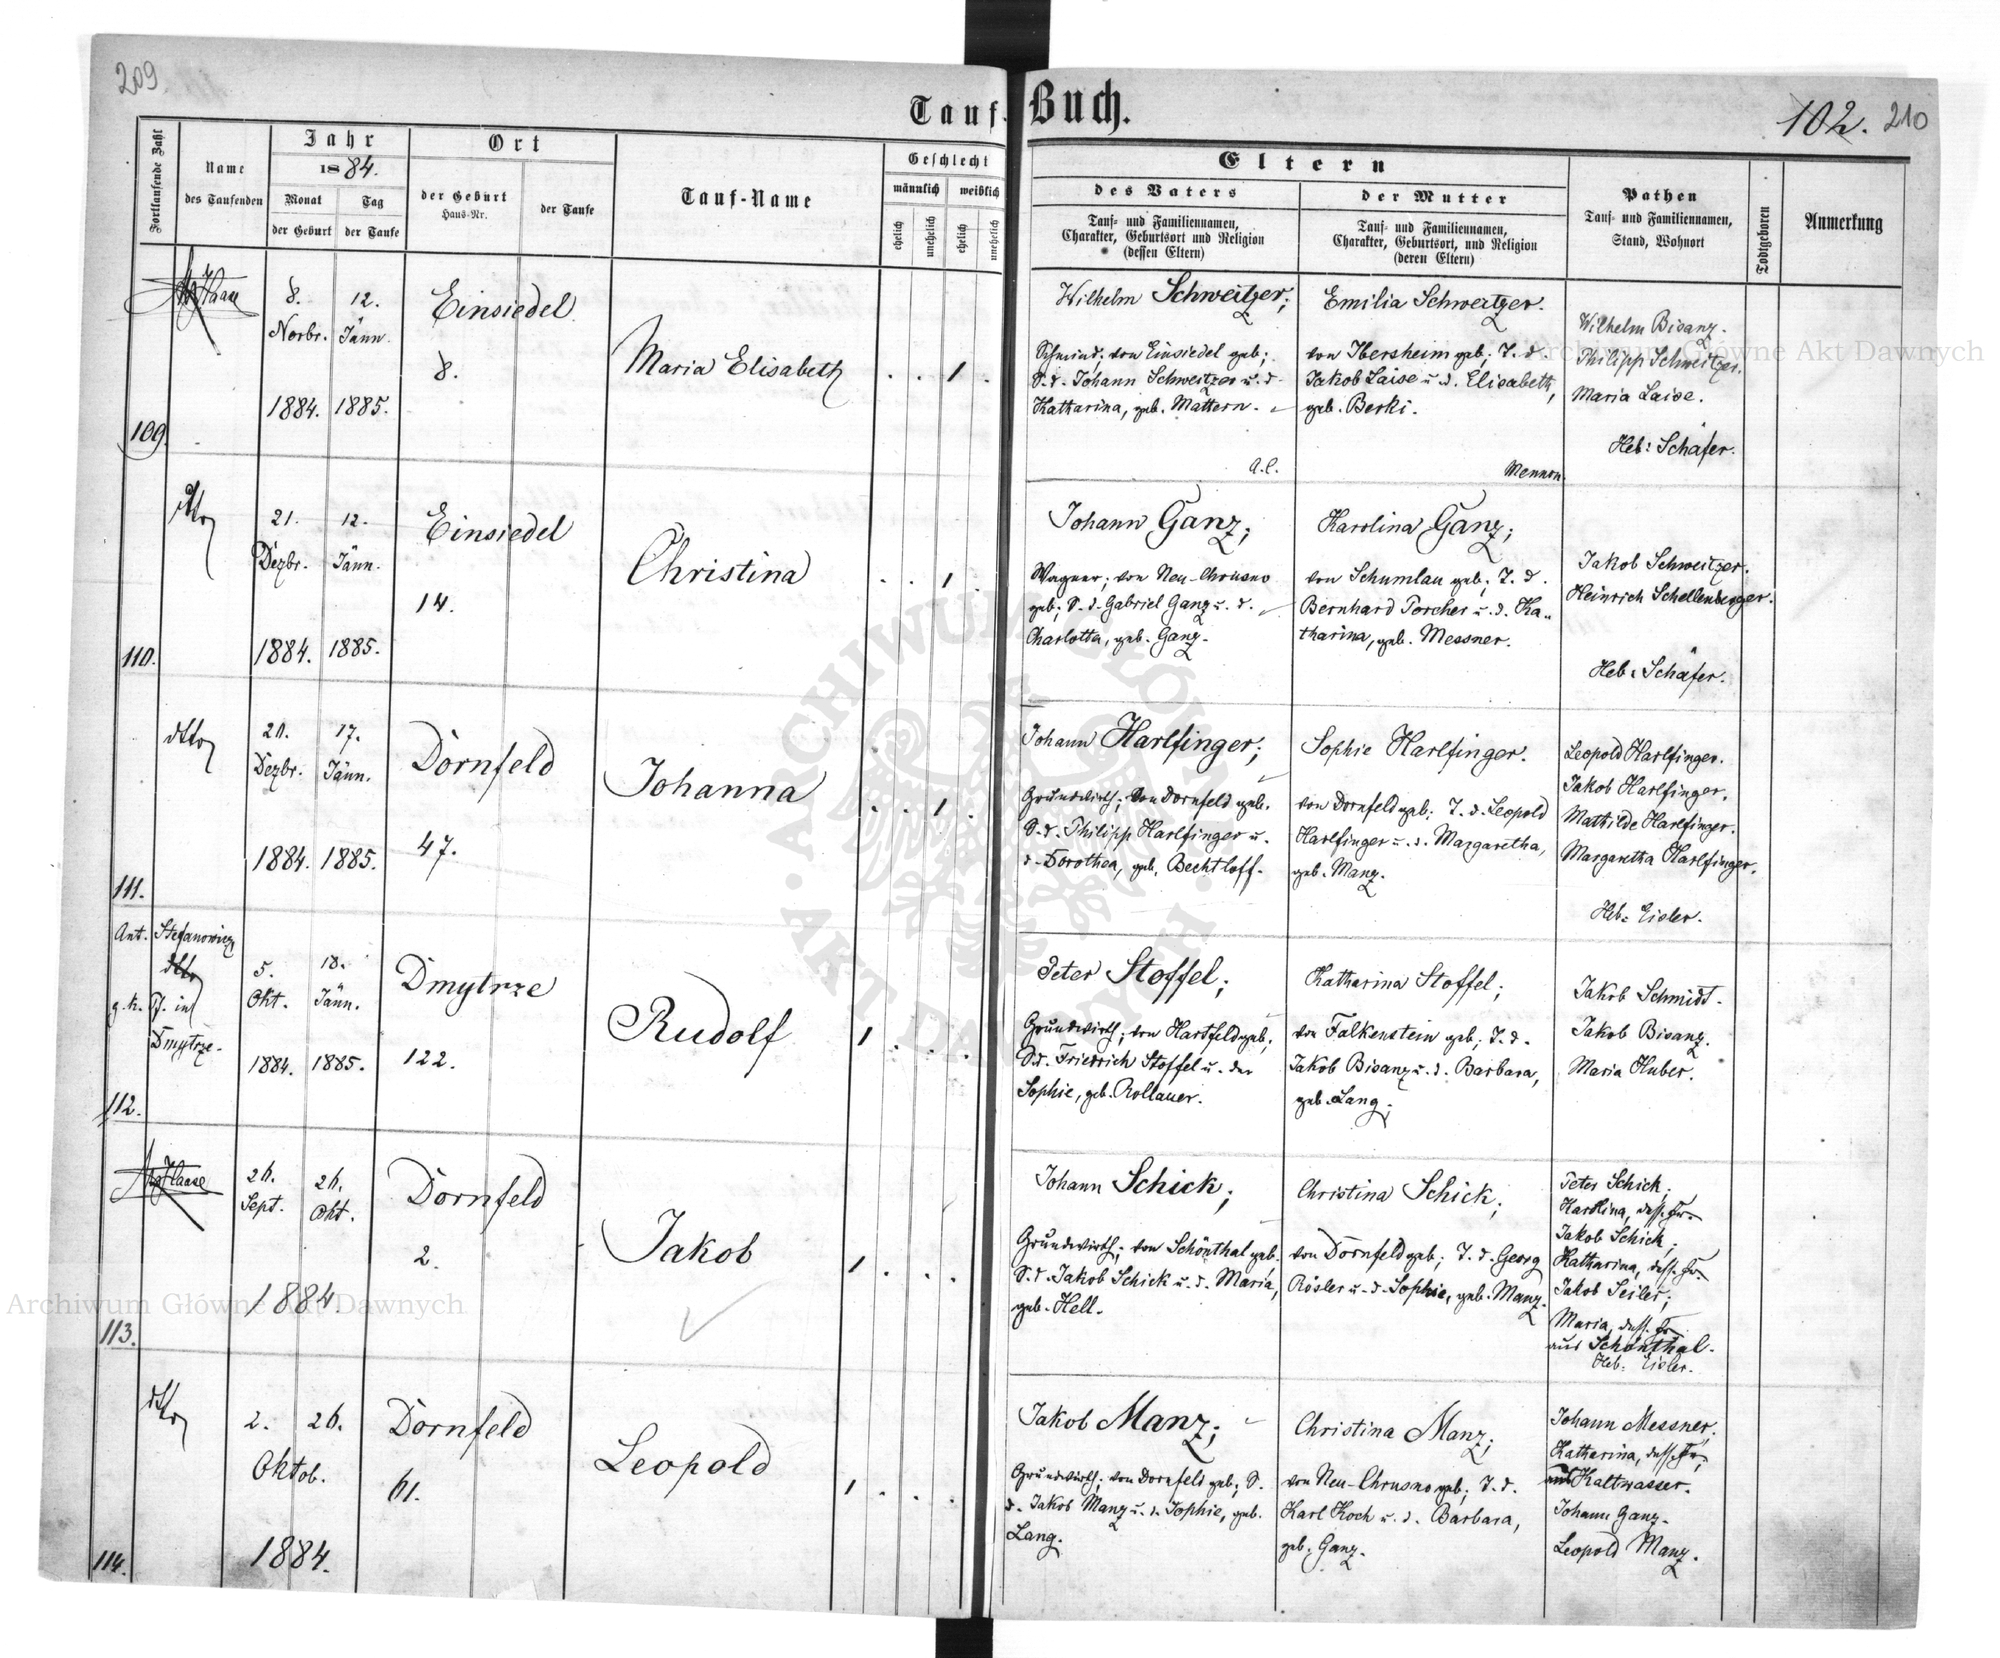 209
Tauf-Buch.
102. 210
Fortlaufende Zahl
Name
des Taufenden
Jahr
1884.
Monat
Tag
der Geburt
der Taufe
Ort
der Geburt
Haus-Nr.
der Taufe
Tauf-Name
Geschlecht
männlich
weiblich
ehelich
unehelich
ehelich
unehelich
Eltern
des Vaters
Tauf- und Familiennamen,
Charakter, Geburtsort und Religion
(dessen Eltern)
der Mutter
Tauf- und Familiennamen,
Charakter, Geburtsort, und Religion
(deren Eltern)
Pathen
Tauf- und Familiennamen,
Stand, Wohnort
Todtgeboren
Anmerkung
109.
Haase
8.
Novbr.
1884.
12.
Jänn.
1885.
Einsiedel
8.
Maria Elisabeth
. . 1 .
Wilhelm Schweitzer;
Schmied. von Einsiedel geb;
S. d. Johann Schweitzer u. d.
Katharina, geb. Mattern.
A.C.
Emilia Schweitzer.
von Ibersheim geb; T. d.
Jakob Laise u. d. Elisabeth,
geb. Berki.
Mennon.
Wilhelm Bisanz.
Philipp Schweitzer.
Maria Laise.
Heb: Schäfer.
110.
dtto
21.
Dezbr.
1884.
12.
Jänn.
1885.
Einsiedel
14.
Christina
. . 1 .
Johann Ganz;
Wagner; von Neu-Chrusno
geb; S. d. Gabriel Ganz u. d.
Charlotta, geb. Ganz.
Karolina Ganz;
von Schumlau geb; T. d.
Bernhard Porcher u. d. Ka-
tharina, geb. Messner.
Jakob Schweitzer.
Heinrich Schellenberger.
Heb: Schäfer.
111.
dtto
20.
Dezbr.
1884.
17.
Jänn.
1885.
Dornfeld
47.
Johanna
. . 1 .
Johann Harlfinger;
Grundwirth; von Dornfeld geb.
S. d. Philipp Harlfinger u.
d. Dorothea, geb. Bechtloff.
Sophie Harlfinger.
von Dornfeld geb; T. d. Leopold
Harlfinger u. d. Margaretha,
geb. Manz.
Leopold Harlfinger.
Jakob Harlfinger.
Mathilde Harlfinger.
Margaretha Harlfinger.
Heb: Eisler.
112.
Ant. Stefanowicz
dtto
g. k. Pf. in
Dmytrze.
5.
Okt.
1884.
18.
Jänn.
1885.
Dmytrze
122.
Rudolf
1 . . .
Peter Stoffel;
Grundwirth; von Hartfeld geb;
S. d. Friedrich Stoffel u. der
Sophie, geb. Rollauer.
Katharina Stoffel;
von Falkenstein geb; T. d.
Jakob Bisanz u. d. Barbara,
geb. Lang;
Jakob Schmidt.
Jakob Bisanz.
Maria Huber.
113.
Haase
26.
Sept.
26.
Okt.
1884.
Dornfeld
2.
Jakob
1 . . .
Johann Schick;
Grundwirth; von Schönthal geb.
S. d. Jakob Schick u. d. Maria,
geb. Hell.
Christina Schick;
von Dornfeld geb; T. d. Georg
Rösler u. d. Sophie, geb. Manz.
Peter Schick;
Karolina, dess. Fr.
Jakob Schick;
Katharina, dess. Fr.
Jakob Seiler;
Maria, dess. Fr.
aus Schönthal.
Heb: Eisler.
114.
dtto
2.
Oktob.
26.
1884.
Dornfeld
61.
Leopold
1 . . .
Jakob Manz;
Grundwirth; von Dornfeld geb; S.
d. Jakob Manz u. d. Sophie, geb.
Lang.
Christina Manz;
von Neu-Chrusno geb; T. d.
Karl Koch u. d. Barbara,
geb. Ganz.
Johann Messner;
Katharina, dess. Fr;
aus Kaltwasser.
Johann Ganz.
Leopold Manz.
Archiwum Główne Akt Dawnych
Archiwum Główne Akt Dawnych
ARCHIWUM GŁÓWNE AKT DAWNYCH